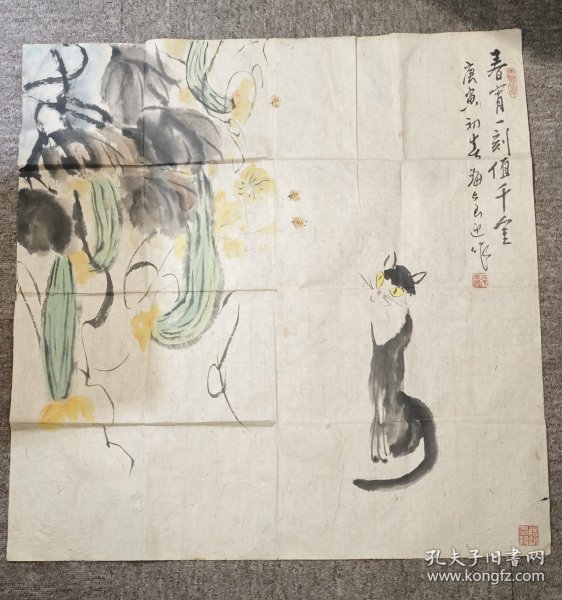 春宵一刻值千金
庚寅初春
近作
孔夫子旧书网
www.kongfz.com